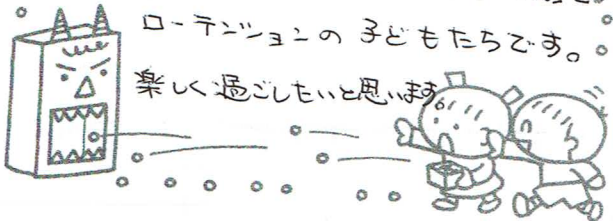 ローテンションの子どもたちです。
楽しく過ごしたいと思います。